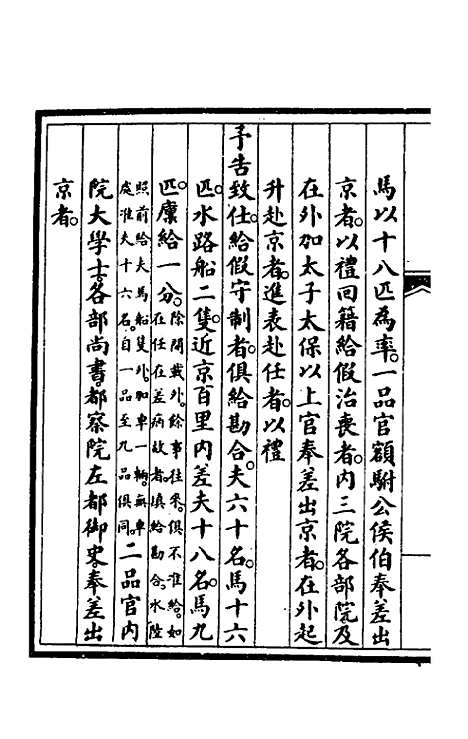 馬以十八匹為率。一品官額駙公侯伯奉差出
京者。以禮回籍給假治喪者。內三院各部院及
在外加太子太保以上官奉差出京者。在外起
升赴京者。進表赴任者。以禮
予告致仕。給假守制者。俱給勘合。夫六十名。馬十六
匹。水路船二隻。近京百里內。差夫十八名。馬九
匹。廩給一分。除開載外。餘事往來。俱不准給。如在任在差病故者。填給勘合。水陸
照前給夫馬船隻外。加車一輛。無車處准夫十六名。自一品至九品俱同。二品官內
院大學士。各部尚書。都察院左都御史。奉差出
京者。